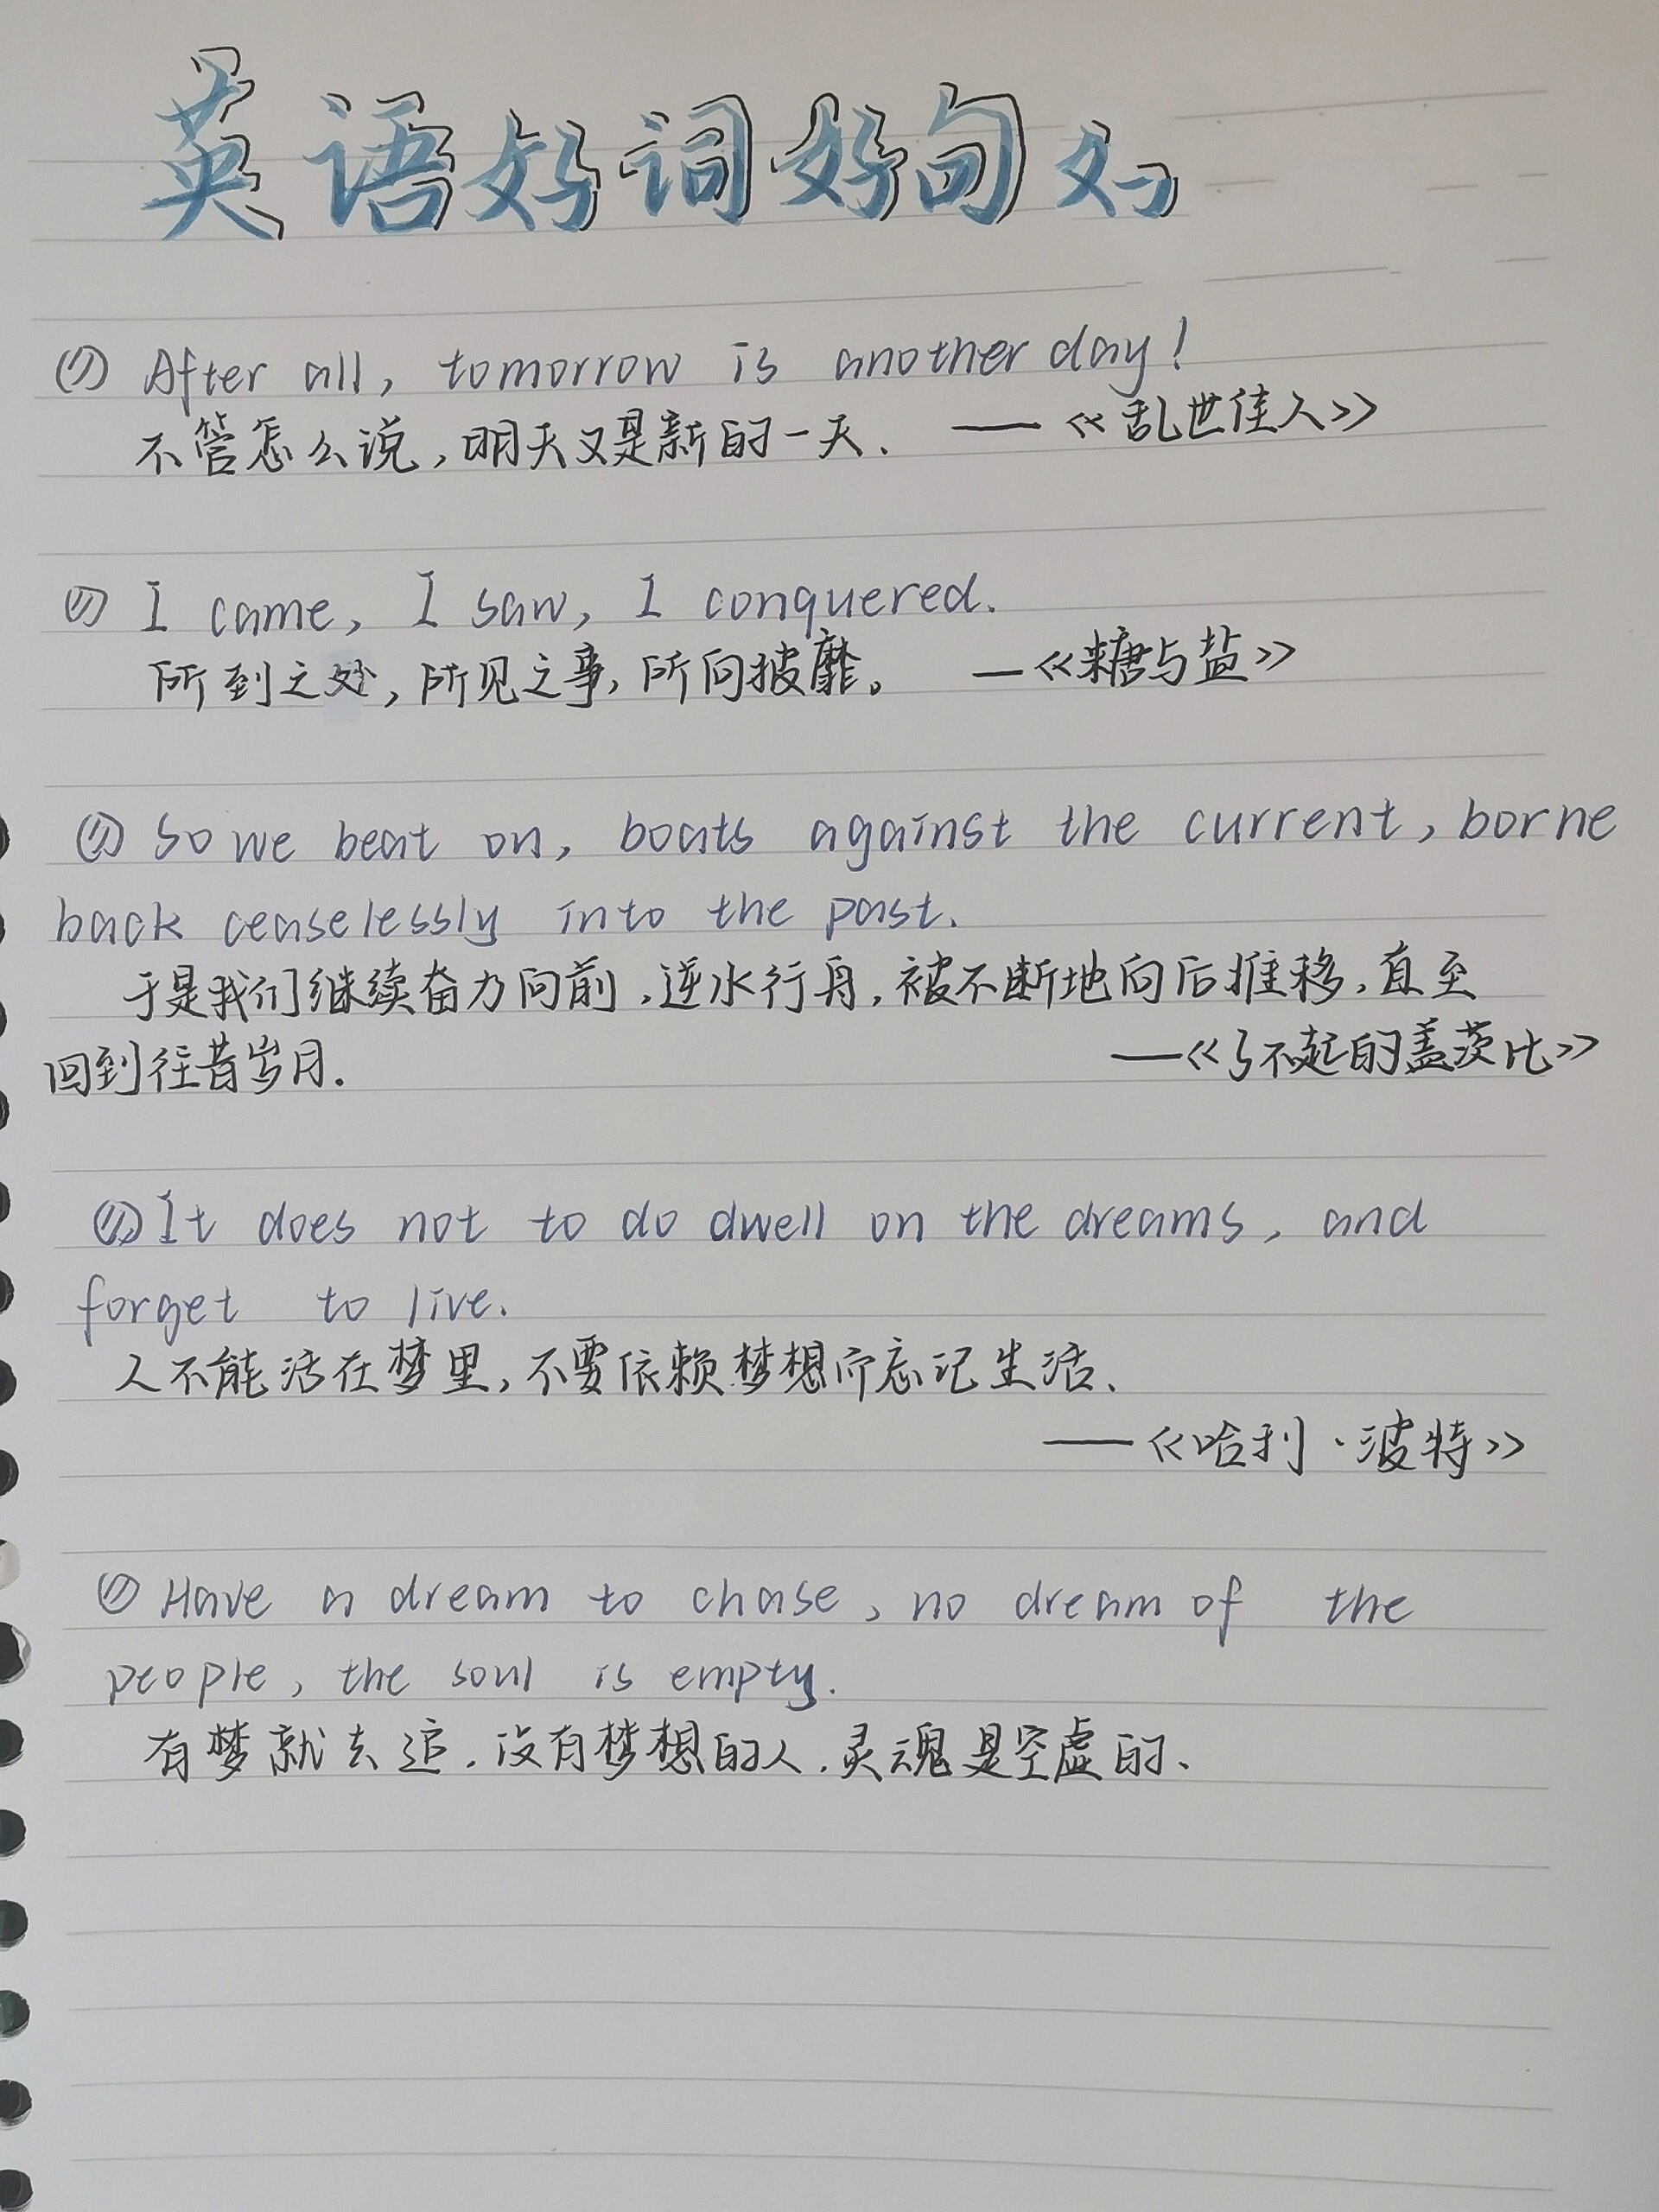 英语好词好句
After all, tomorrow is another day!
不管怎么说,明天又是新的一天. ——《乱世佳人》
I came, I saw, I conquered.
所到之处,所见之事,所向披靡。 —《糖与盐》
So we beat on, boats against the current, borne
back ceaselessly into the past.
于是我们继续奋力向前,逆水行舟,被不断地向后推移,直至
回到往昔岁月. —《了不起的盖茨比》
It does not to do dwell on the dreams, and
forget to live.
人不能活在梦里,不要依赖梦想而忘记生活.
——《哈利·波特》
Have a dream to chase, no dream of the
people, the soul is empty.
有梦就去追.没有梦想的人.灵魂是空虚的.